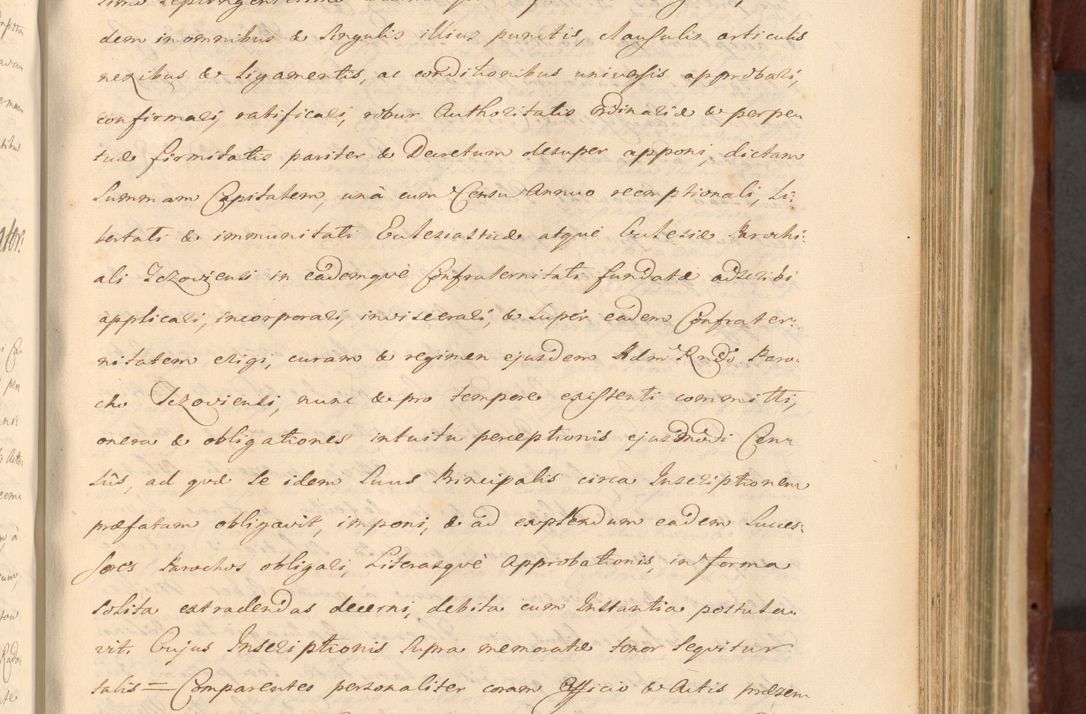 dem in omnibus & singulis illius punctis, clausulis articulis
nexibus & ligamentis, ac conditionibus universis approbari,
confirmari, ratificari, robur Authoritatis Ordinariæ & perpe
tuæ firmitatis pariter & Decretum desuper apponi, dictam
Summam Capitalem, unà cum Censu Annuo reemptionali, Li:
bertati & immunitati Eclesiasticæ atquè Eclesiæ Parochi:
ali Jezoviensi in eâdemquè Confraternitati fundatæ adscribi
applicari, incorporari, inviscerari, & super eâdem Confrater:
nitatem erigi, curam & regimen ejusdem Adm Rndo Paro:
cho Jezoviensi, nunc & pro tempore existenti committi,
onera & obligationes intuitu perceptionis ejusmodi Cen
sûs, ad quæ se idem Suus Principalis circa Inscriptionem
præfatam obligavit, imponi, & ad explendum eadem Succes:
sores Parochos obligari, Literasquè Approbationis, in forma
solita extradendas decerni, debita cum Instantia postula
vit. Cujus Inscriptionis supra memoratæ tenor sequitur
talis = Comparentes personaliter coram Officio & Actis præsen